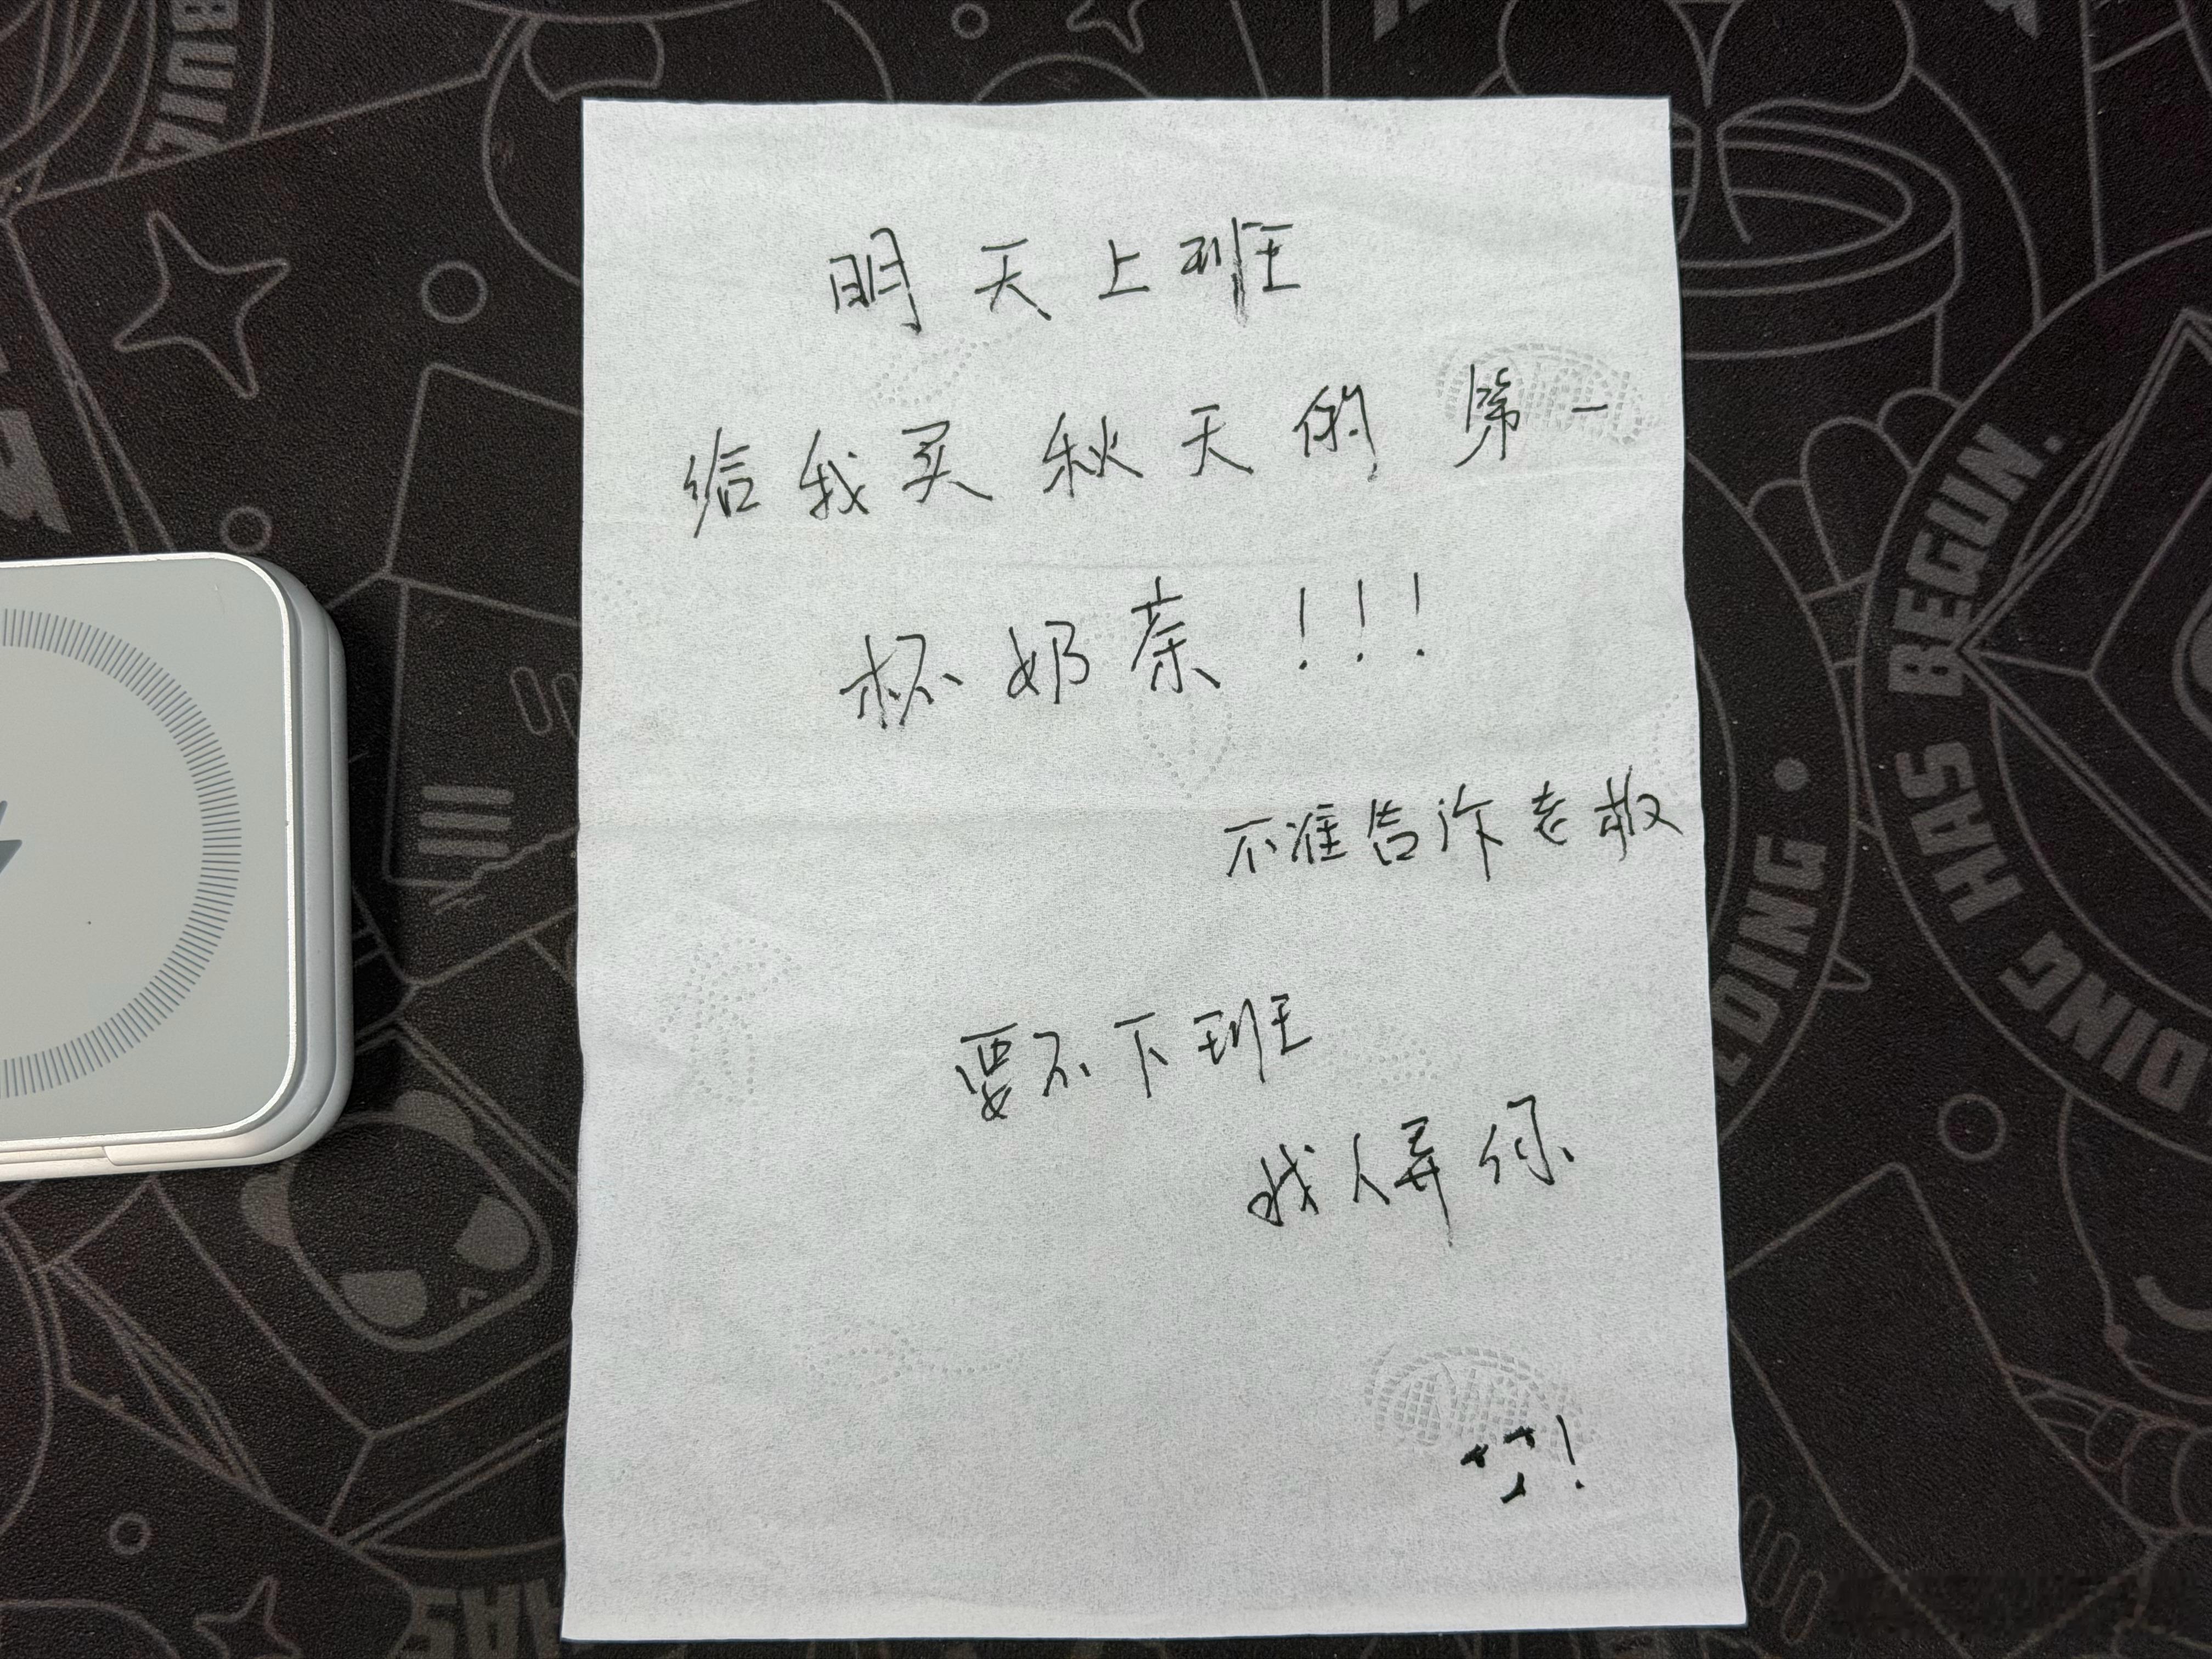 明天上班
给我买秋天的第一
杯奶茶!!!
不准告诉老
要不下班
找人弄你
BUIL
BEGUN.
HAS
DING
LDING
HAS